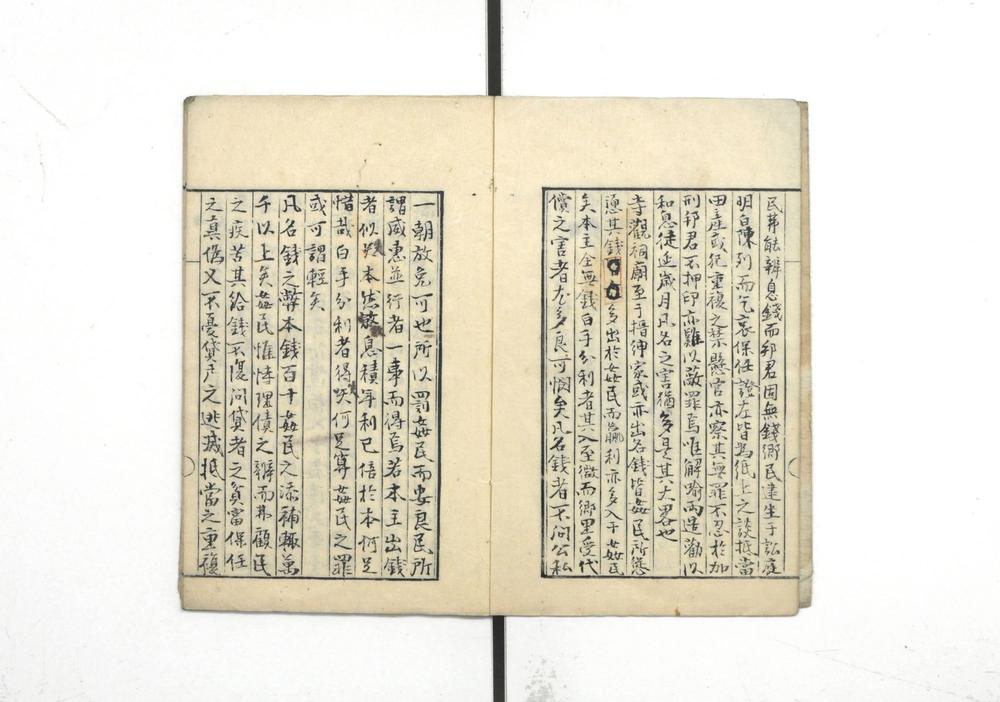 民弗能辨息錢而邦君固無錢鄉民連坐于訟庭
明白陳列而乞哀保任證左皆為紙上之談抵當
田產或犯重複之禁縣官亦察其無罪不忍於加
刑邦君不押印亦難以蔽罪焉唯解喻兩造勸以
和息徒延歲月凡名之害猶多是其大畧也
寺觀祠廟至于搢紳家或亦出名錢皆姦民所慫
慂其錢多出於姦民而贏利亦多入于姦民
矣本主全無錢白手分利者其入至微而鄉里受代
償之害者尤多良可憫矣凡名錢者不問公私
一朝放免可也所以罰姦民而安良民所
謂威惠並行者一事而得焉若本主出錢
者似失本然息積年利已倍於本何足
惜哉白手分利者得失何足算姦民之罪
或可謂輕矣
凡名錢之弊本錢百千姦民之添補輒萬
千以上矣姦民惟悻理債之辨而弗顧民
之疾苦其給錢不復問貸者之貧富保任
之真偽又不憂貸戶之逃滅抵當之重複